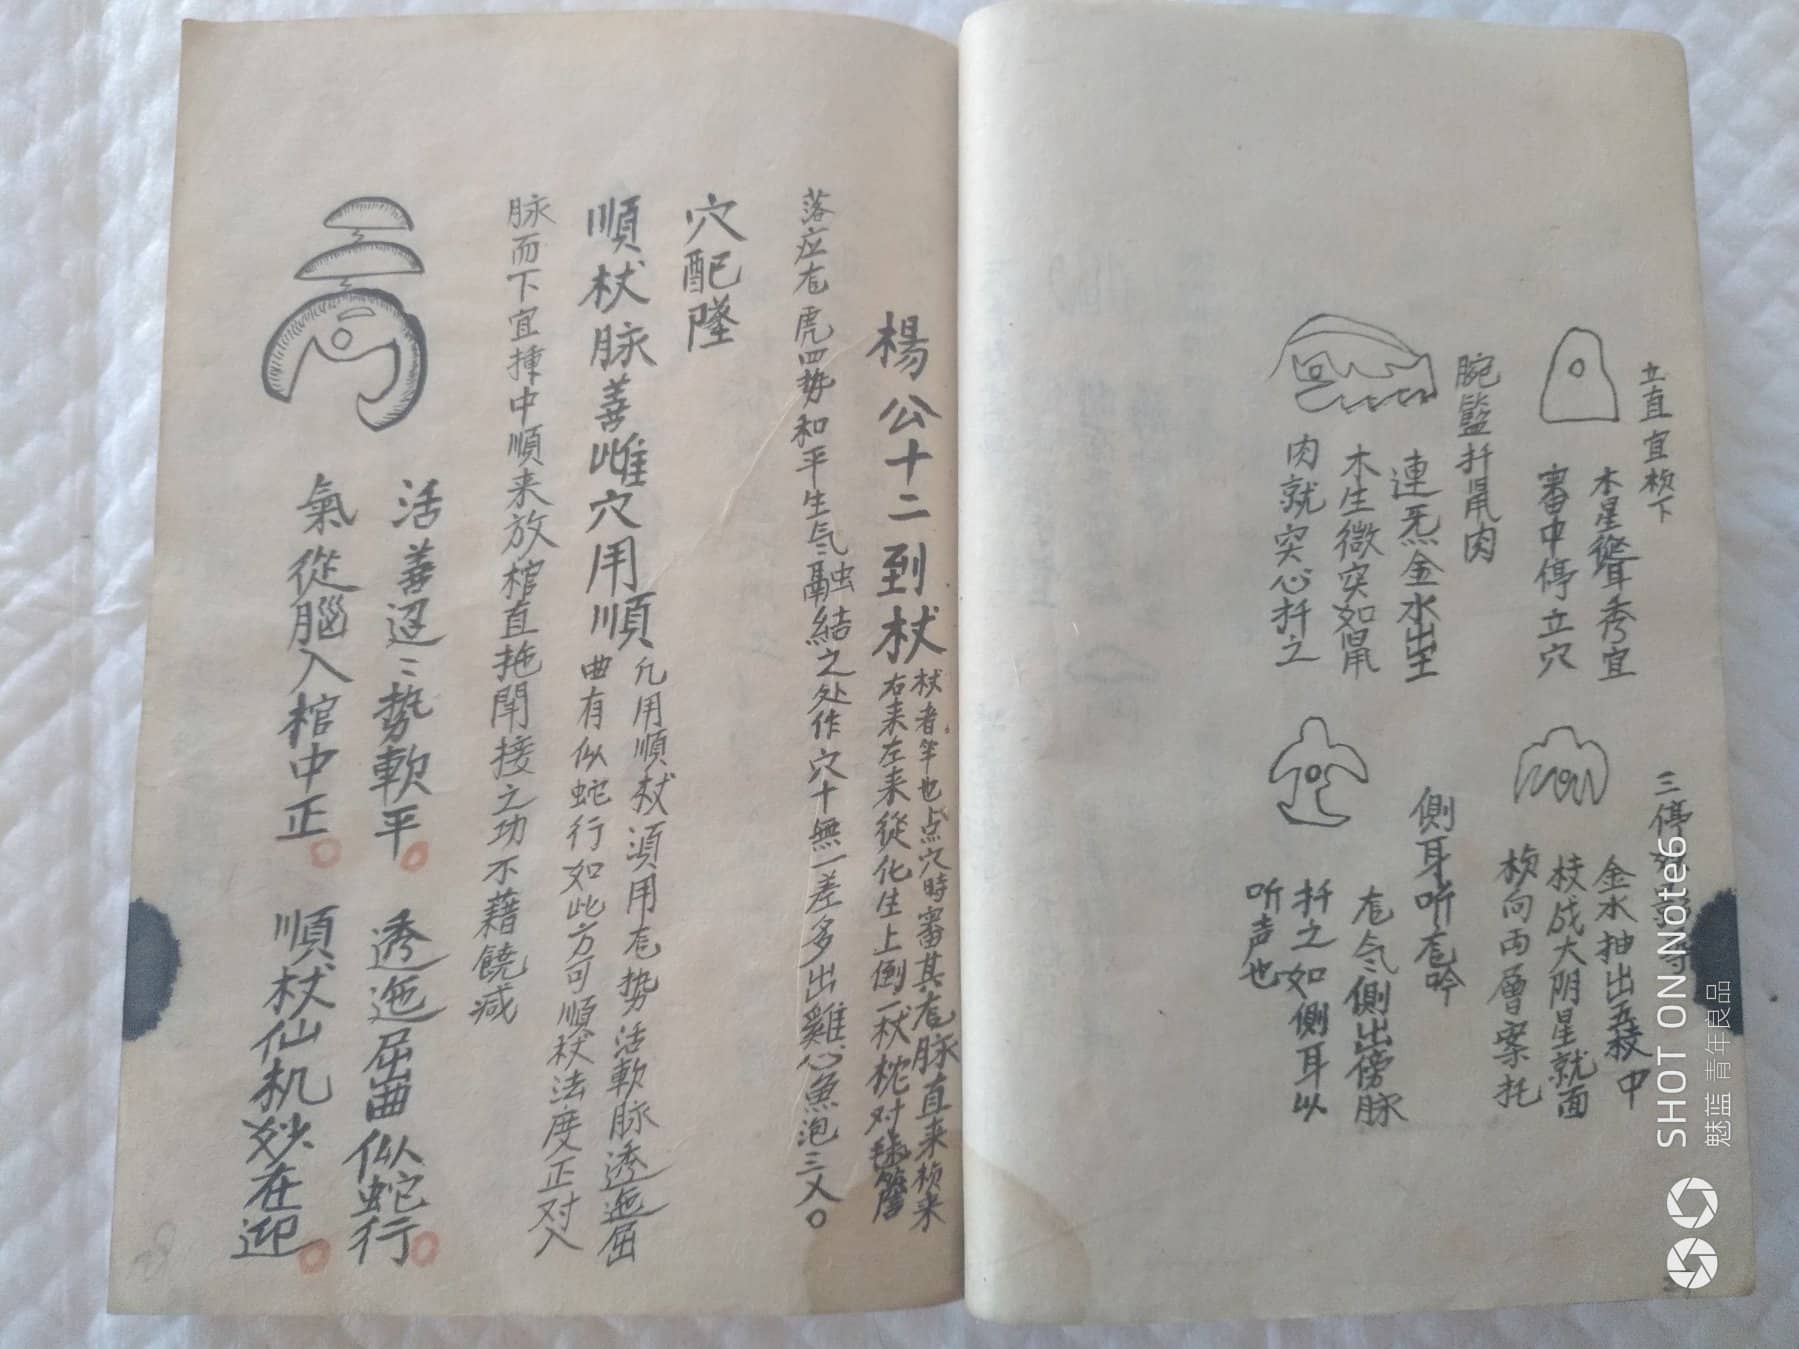 立直宜桢下
木星聳秀宜
審中停立穴
腕籃扦鼡肉
連炁金水出土
木生微突如鼡
肉就突心扦之
三停
金水抽出五枝中
枝成大阴星就面
桢向两層案托
側耳听㡯吟
㡯氣側出傍脉
扦之如側耳以
听声也
楊公十二到杖
杖者竿也点穴時審其㡯脉直来桢来
右来左来從化生上倒一杖枕对毬簷
落应㡯虎四势和平生气融結之处作穴十無一差多出雞心魚泡三乂。
穴配墜
順杖脉善雌穴用順
凢用順杖湏用㡯势活軟脉透迤屈
曲有似蛇行如此方可順杖法度正对入
脉而下宜揰中順来放棺直拖閗接之功不藉饒减
活善迢〻势軟平。透迤屈曲似蛇行。
氣從腦入棺中正。順杖仙机妙在迎。
SHOT ON Note6
魅蓝 青年良品